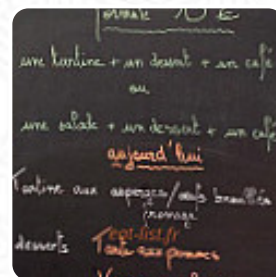 formule 10 €
une tartine + un dessert + un café
ou
une salade + un dessert + un café
aujourd'hui
Tartine aux asperges/œufs brouillés
fromage
eat-list.fr
desserts Tarte aux pommes